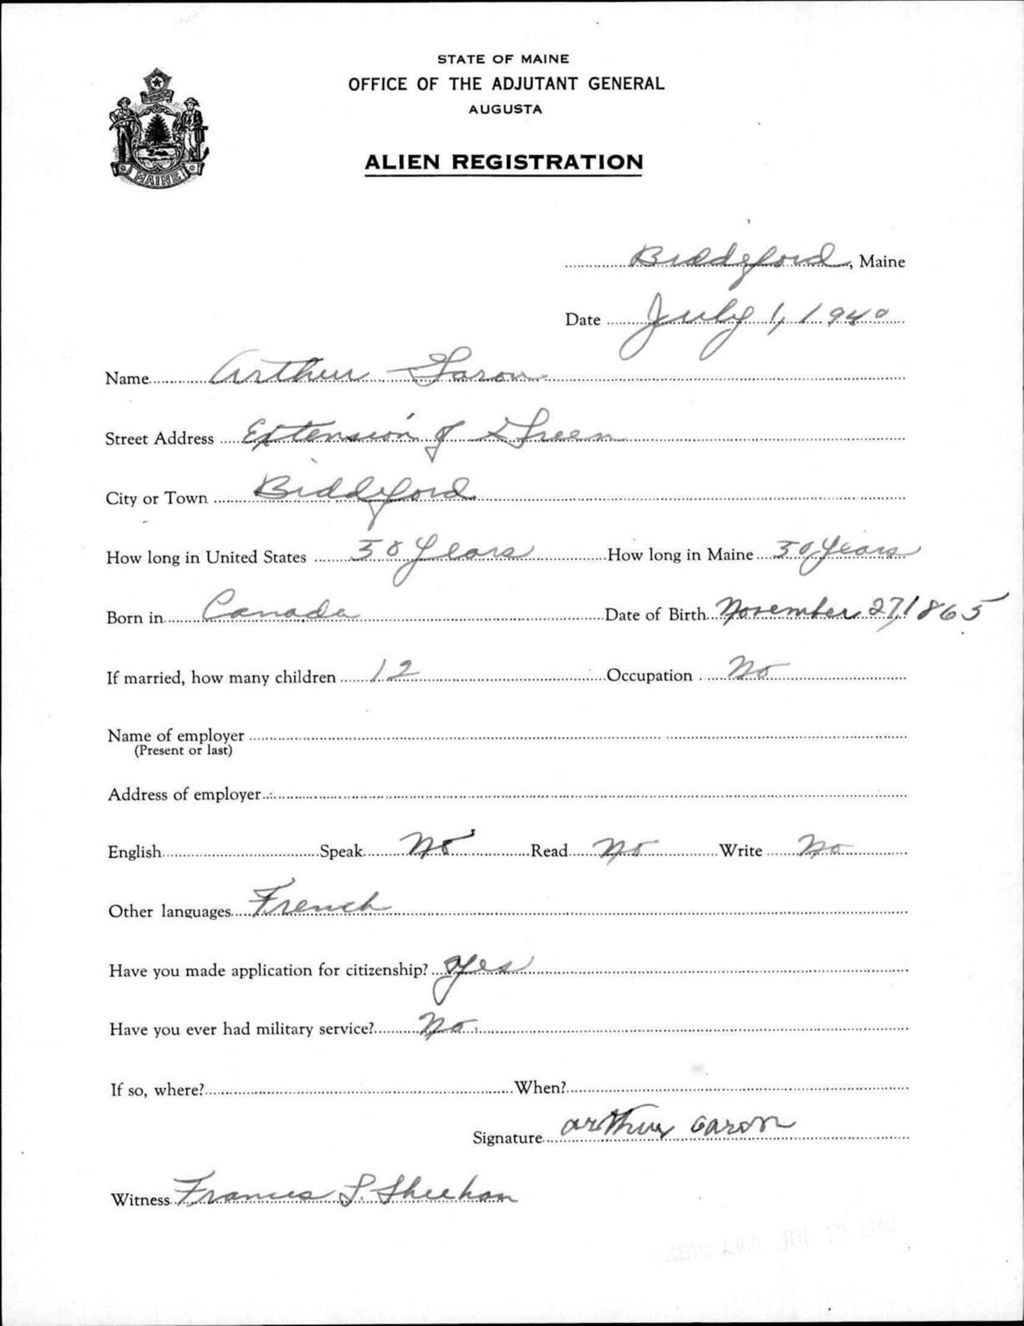 STATE OF MAINE
OFFICE OF THE ADJUTANT GENERAL
AUGUSTA
MAINE
ALIEN REGISTRATION
Biddeford, Maine
Date July 1, 1940
Name Arthur
Street Address Extension of Green
City or Town Biddeford
How long in United States Years How long in Maine Years
Born in Canada Date of Birth November 27, 1865
If married, how many children 12 Occupation No
Name of employer
(Present or last)
Address of employer
English Speak No Read No Write No
Other languages French
Have you made application for citizenship? Yes
Have you ever had military service? No.
If so, where? When?
Signature arthur
Witness Frances Sheehan